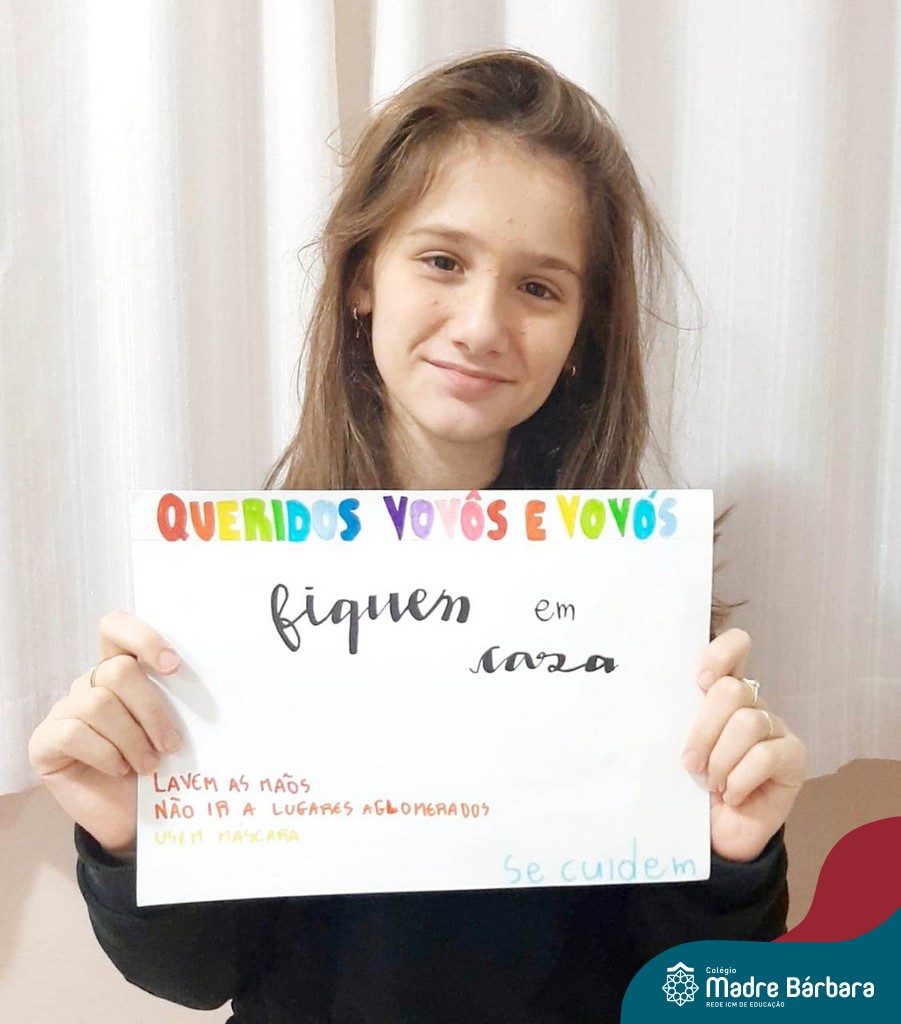 QUERIDOS VOVÔS E VOVÓS
fiquem em
casa
LAVEM AS MAÕS
NÃO IR A LUGARES AGLOMERADOS
USEM MÁSCARA
se cuidem
Colégio
Madre Bárbara
REDE ICM DE EDUCAÇÃO